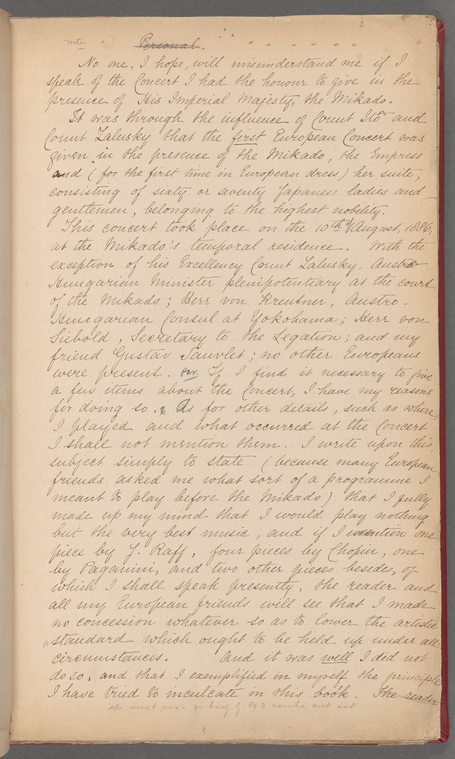 notes Personal.
No one, I hope, will misunderstand me if I
speak of the Concert I had the honour to give in the
presence of His Imperial Majesty, the Mikado.
It was through the influence of Count Ito and
Count Zalusky that the first European Concert was
given in the presence of the Mikado, the Empress
and (for the first time in European dress) her suite,
consisting of sixty or seventy Japanese ladies and
gentlemen, belonging to the highest nobility.
This concert took place on the 10th of August, 1886,
at the Mikado's temporal residence. With the
exception of his Excellency Count Zalusky, Austro-
Hungarian Minister plenipotentiary at the court
of the Mikado; Herr von Kreutner, Austro-
Hungarian Consul at Yokohama; Herr von
Siebold, Secretary to the Legation; and my
friend Gustav Sauvlet; no other Europeans
were present. If I find it necessary to give
a few items about the Concert, I have my reasons
for doing so. As for other details, such as where
I played and what occurred at the Concert
I shall not mention them. I write upon this
subject simply to state (because many European
friends asked me what sort of a programme I
meant to play before the Mikado) that I fully
made up my mind that I would play nothing
but the very best music, and if I mention one
piece by J. Raff, four pieces by Chopin, one
by Paganini, and two other pieces besides, of
which I shall speak presently, the reader and
all my European friends will see that I made
no concession whatever so as to lower the artistic
standard which ought to be held up under all
circumstances. And it was well I did not
do so, and that I exemplified in myself the principle
I have tried to inculcate in this book. The reader